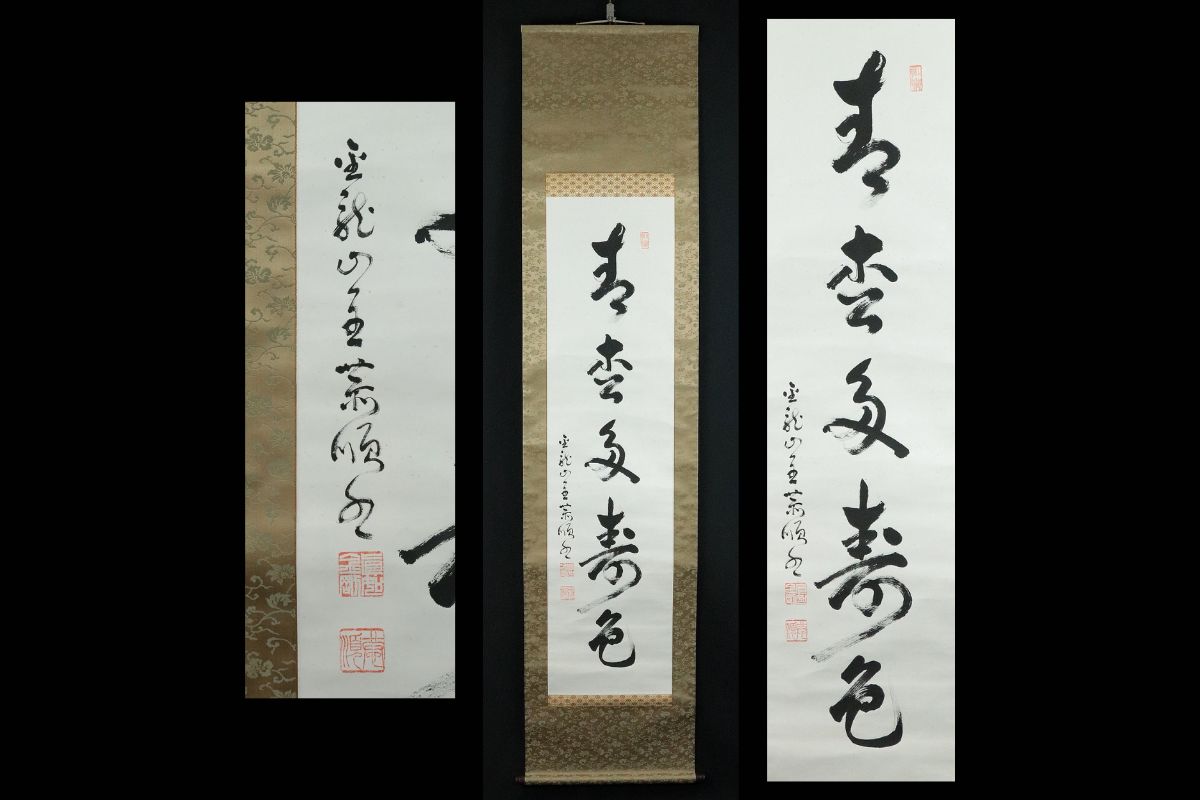 金龍山主恭順書
青枩多寿色
金龍山主恭順書
青枩多寿色
金龍山主恭順書